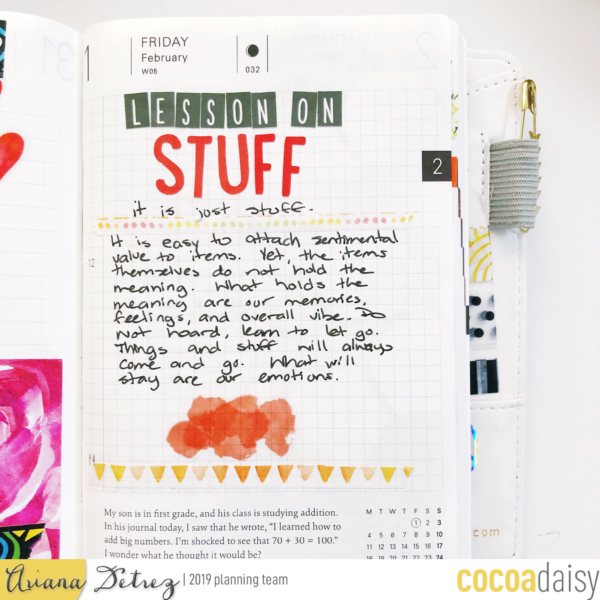 31
1
FRIDAY
February
W05
032
2
LESSON ON
STUFF
it is just stuff.
It is easy to attach sentimental
value to items. Yet, the items
themselves do not hold the
meaning. What holds the
meaning are our memories,
feelings, and overall vibe. Do
not hoard, learn to let go.
Things and stuff will always
come and go. What will
stay are our emotions.
12
2
My son is in first grade, and his class is studying addition.
In his journal today, I saw that he wrote, “I learned how to
add big numbers. I'm shocked to see that 70 + 30 = 100.”
I wonder what he thought it would be?
M T W T F S S
1 2 3
4 5 6 7 8 9 10
11 12 13 14 15 16 17
18 19 20 21 22 23 24
com
Ariana Detrez | 2019 planning team
cocoadaisy